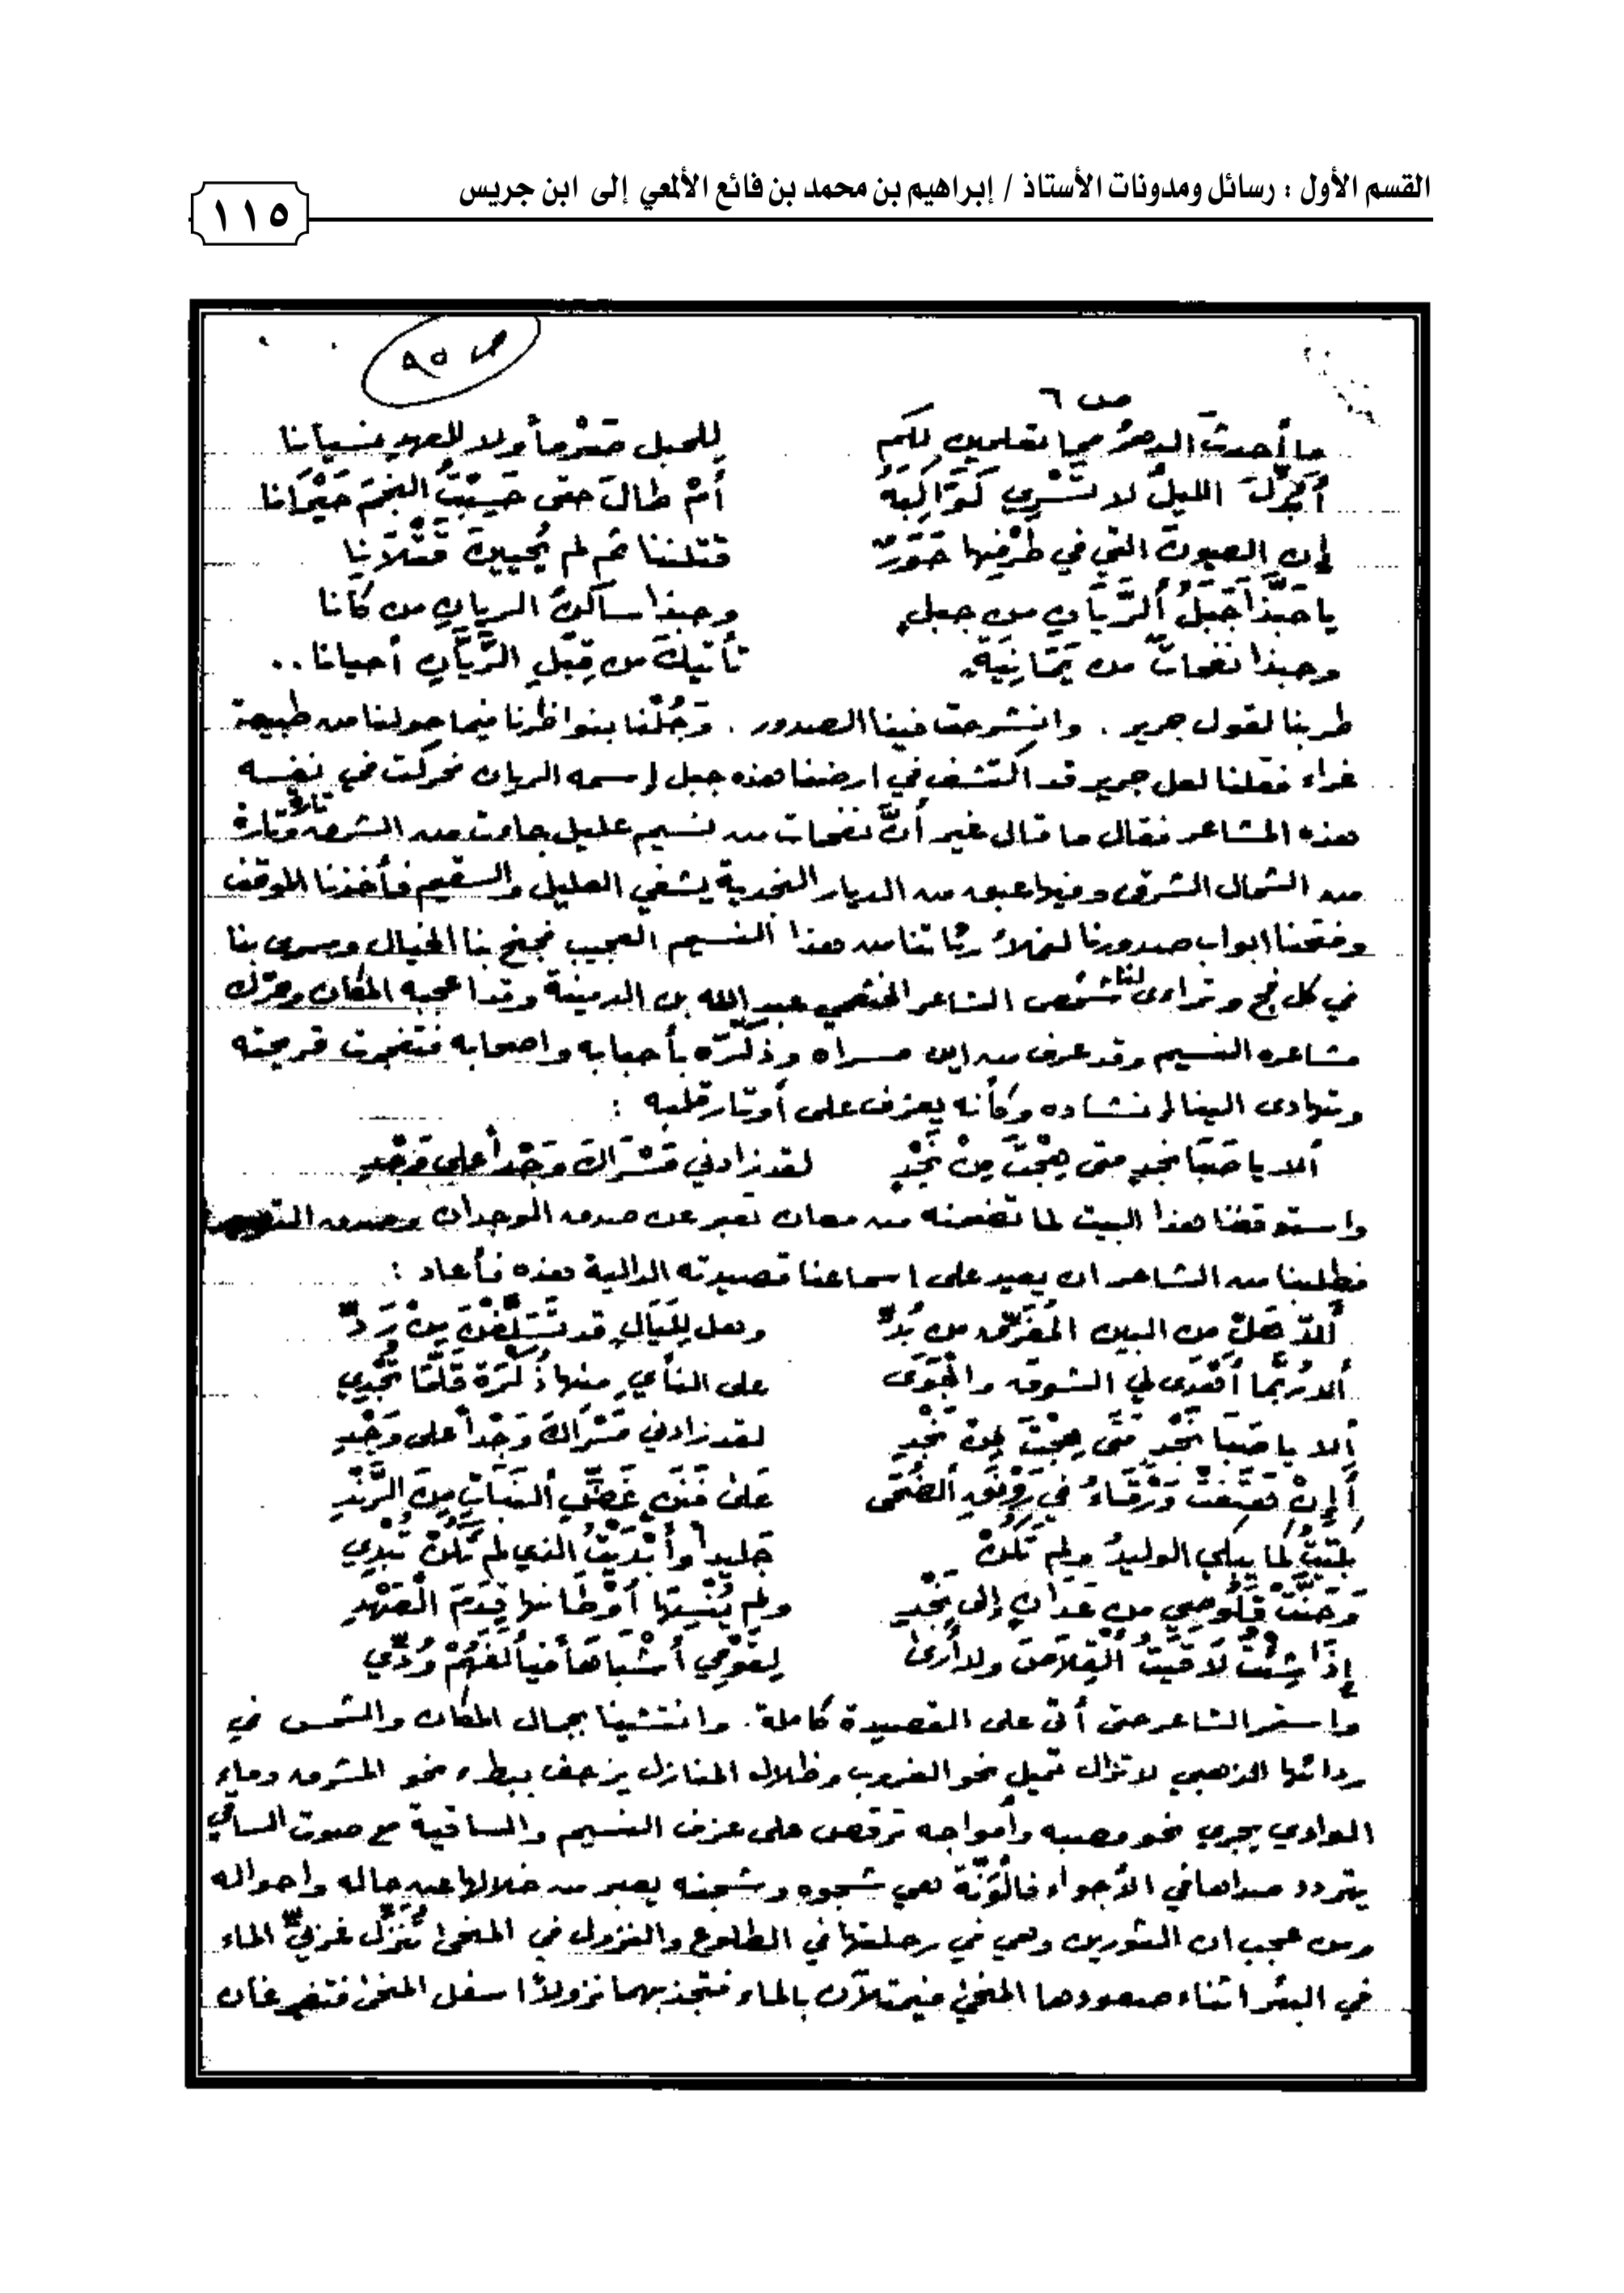 القسم الأول : رسائل ومدونات الأستاذ / إبراهيم بن محمد بن فائع الألمعي إلى ابن جريس
١١٥
ص ٨٥
ص ٦
ما أحدث الدهرُ مما تعلمين لكم للحبل صَرْماً ولا للعهد نسيانا
أَبُدِّلَ الليلُ لا تَسْرِي كَوَاكِبُهُ أَمْ طالَ حتى حَسِبْتُ النجمَ حَيْرَانا
إن العيون التي في طَرْفِها حَوَرٌ قتلننا ثم لم يُحيينَ قَتْلَانا
يا حَبَّذَا جَبَلُ الرَّيَّانِ من جبلٍ وحبذا ساكنُ الريانِ من كانا
وحبذا نفحاتٌ من يَمَانِيَةٍ تأتيكَ من قِبَلِ الرَّيَّانِ أحيانا ..
طربنا لقول جرير . وانشرحت فينا الصدور . وَجُلْنا بنواظرنا فيما حولنا من طبيعة
غراء فقلنا لعل جرير قد اكتشف في ارضنا هذه جبل اسمه الريان فحركت في نفسه
هذه المشاعر فقال ما قال غير أنَّ نفحات من نسيم عليل جاءت من الشرق تارة وتارة
من الشمال الشرقي وفيها عبق من الديار النجدية يشفي العليل والسقيم فأخذنا الموقف
وفتحنا ابواب صدورنا لنملأ رئاتنا من هذا النسيم العجيب فجنح بنا الخيال وسرى بنا
في كل فج وتراءى لنا شخص الشاعر الخثعمي عبد الله بن الدمينة وقد اعجبه المكان وحرّك
مشاعره النسيم وقد عرف من اين مسراه وذكّره بأحبابه واصحابه فتفجرت قريحته
وتهادى الينا انشاده وكأنه يعزف على أوتار قلبه :
ألا يا صَبَا نجدٍ متى هِجْتَ مِنْ نَجْدٍ لقد زادني مَسْرَاك وَجْداً على وَجْدِ
واستوقفنا هذا البيت لما تضمنه من معان تعبر عن صدق الوجدان وصدق
فطلبنا من الشاعر ان يعيد على اسماعنا قصيدته الدالية هذه فأعاد :
ألا هَلْ من البين المُفَرِّق من بُدِّ وهل لِلَيَالٍ قد تَسَلَّفْنَ مِنْ رَدِّ
ألا رُبَّما أَهْدَى لي الشوق والجَوَى على النأيِ منها ذُكْرَة قَلَّمَا تُجْدِي
ألا يا صَبَا نَجْدٍ مَتَى هِجْتَ مِنْ نَجْدٍ لقد زادني مَسْرَاكَ وَجْداً على وَجْدِ
أَإِنْ هَتَفَتْ وَرْقَاءُ في رَوْنَقِ الضُّحَى عَلى فَنَنٍ غَضِّ النَبَاتِ مِنَ الرَّنْدِ
بَكَيْتَ كما يبكي الوليدُ ولم تَكُنْ جَليداً وأَبْدَيْتَ الذي لم تَكُنْ تُبْدِي
وَحَنَّتْ قَلُوصِي من عَدَانٍ إلى نَجْدٍ ولم يُنْسِهَا أَوْطَانها قِدَمُ الْعَهْدِ
إِذَا شِئْتُ لَاقَيْتُ الْقِلَاصَ ولا أرى لِقَوْمِي أَشْبَاهَاً فيألفَهُمْ وُدِّي
واستمر الشاعر حتى أتى على القصيدة كاملة . وانتشينا بجمال المكان والشمس في
ردائها الذهبي لا تزال تميل نحو الغروب وظلال المنازل يزحف ببطء نحو المشرق وماء
الوادي يجري نحو مصبه وأمواجه ترقص على عزف النسيم والساقية مع صوت الساقي
يتردد صداها في الأجواء هي شجوه وشجنه يعبر من خلالها عن حاله واحواله
ومن عجب ان الثورين وهي في رحلتها في الطلوع والنزول في المنحى غربيّ الماء
في البئر اثناء صعودهما المنحى فيمتلآن بالماء فتجذبهما نزولاً اسفل المنحى فتفرغان